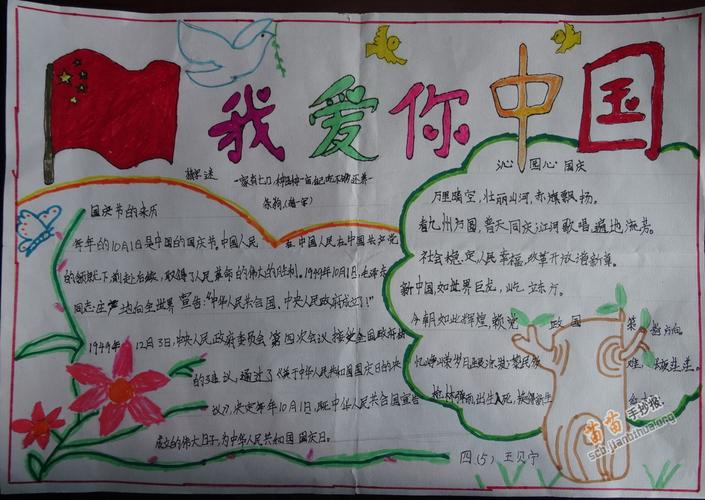 我爱你中国
猜字迷
国庆节的来历
每年的10月1日是中国的国庆节。中国人民 在中国共产党
的领导下,前赴后继,取得了人民革命的伟大的胜利。1949年10月1日,毛泽东
同志庄严地向全世界宣告:“中华人民共合国,中央人民政府成立了!”
1949年 12月3日,中央人民政府委员会第四次会议,接受全国政协
的建议,通过了《关于中华人民共和国国庆日的决
议》,决定每年10月1日,既中华人民共合国宣告
成立的伟大日子,为中华人民共和国国庆日。
沁园心 国庆
万里晴空,壮丽山河,赤旗飘扬。
看九州方圆,普天同庆江河歌唱,遍地流芳。
社会稳定,人民幸福,改革开放谱新章。
新中国,如世界巨龙,屹立东方。
今朝如此辉煌,赖党政国策
忆峥嵘岁月
枪林弹雨出生入死
四(5) 王贝宁
苗苗手抄报
scb.jianbihuaing.com